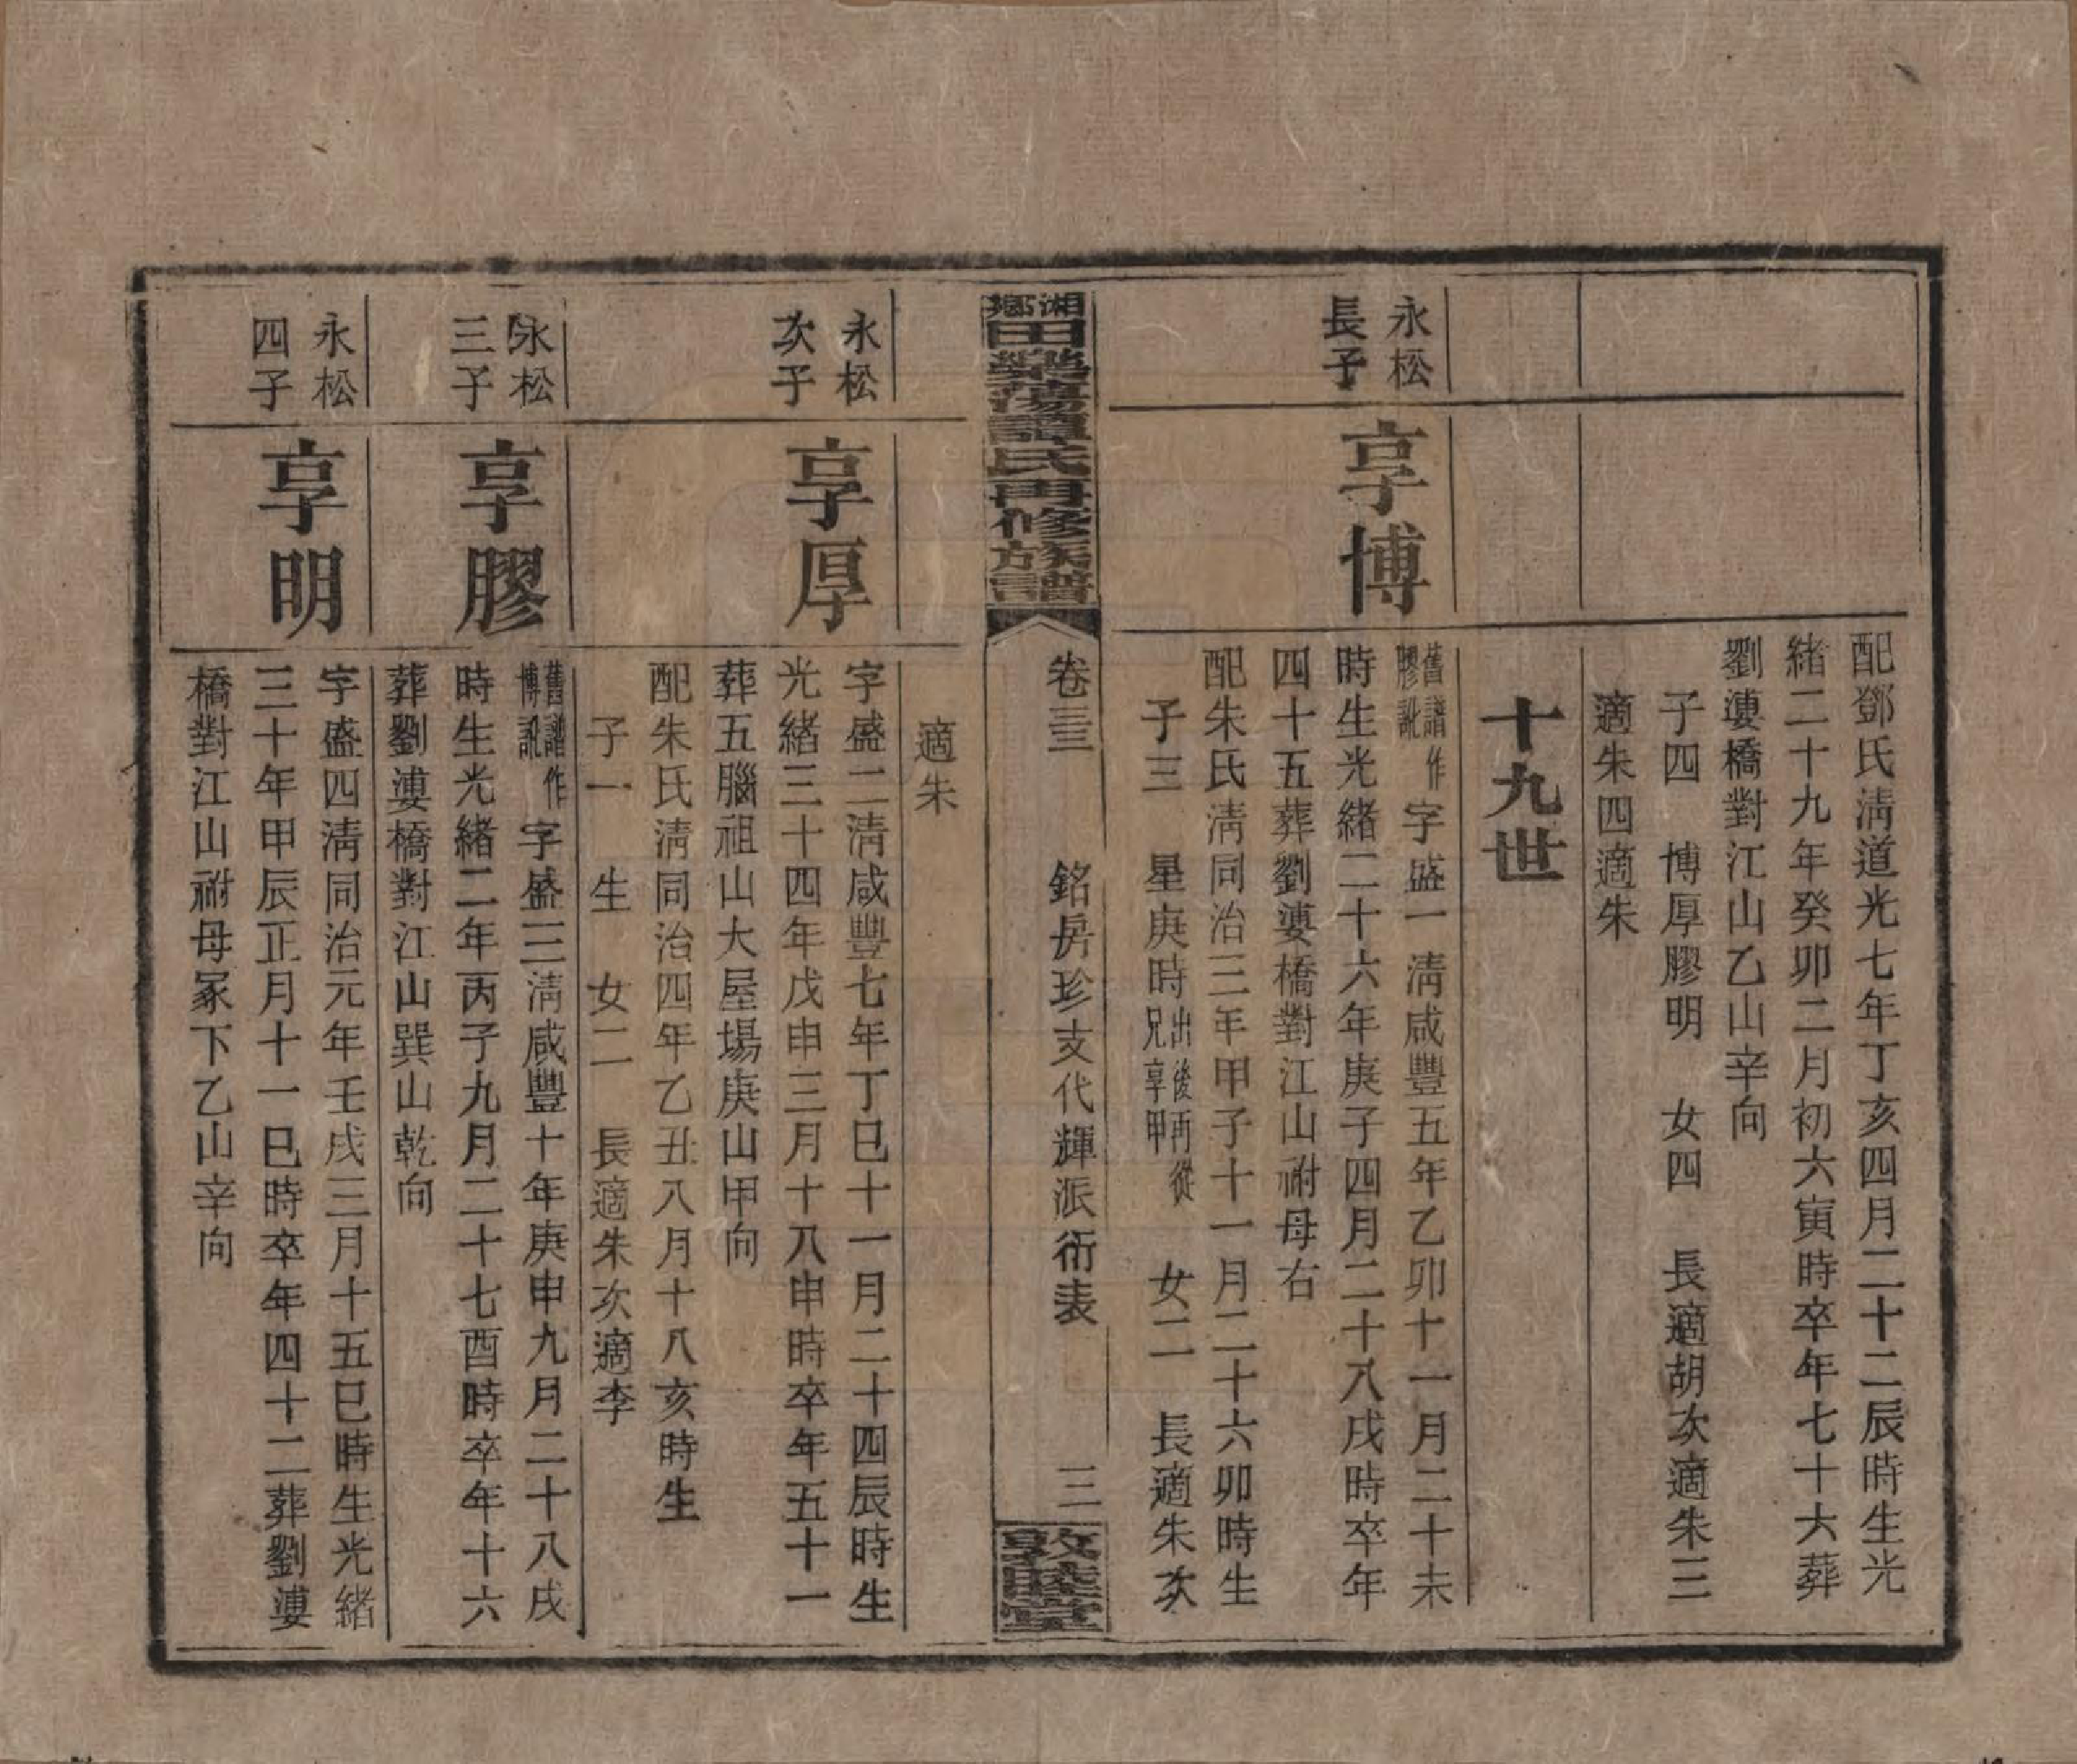 配鄧氏淸道光七年丁亥四月二十二辰時生光
緒二十九年癸卯二月初六寅時卒年七十六葬
劉漊橋對江山乙山辛向
子四　博厚膠明　女四　長適胡次適朱三
適朱四適朱
十九世
永松
長子
享博
舊譜作
膠訛
字盛一淸咸豐五年乙卯十一月二十未
時生光緒二十六年庚子四月二十八戌時卒年
四十五葬劉漊橋對江山祔母右
配朱氏淸同治三年甲子十一月二十六卯時生
子三　星庚時
出後再從
兄享甲
女二　長適朱次
湘鄉
田藥蕩譚氏再修族譜
卷三三　銘房珍支代輝派衍表　三
敦睦堂
適朱
永松
次子
享厚
字盛二淸咸豐七年丁巳十一月二十四辰時生
光緒三十四年戊申三月十八申時卒年五十一
葬五腦祖山大屋場庚山甲向
配朱氏淸同治四年乙丑八月十八亥時生
子一　生　女二　長適朱次適李
永松
三子
享膠
舊譜作
博訛
字盛三淸咸豐十年庚申九月二十八戌
時生光緒二年丙子九月二十七酉時卒年十六
葬劉漊橋對江山巽山乾向
永松
四子
享明
字盛四淸同治元年壬戌三月十五巳時生光緒
三十年甲辰正月十一巳時卒年四十二葬劉漊
橋對江山祔母冢下乙山辛向